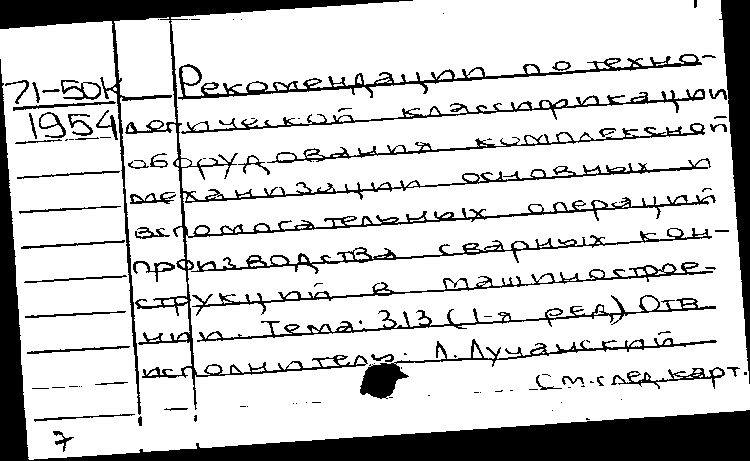 71-50К Рекомендации по техно-
1954 логической классификации
оборудования комплексной
механизации основных и
вспомогательных операций
производства сварных кон-
струкций в машинострое-
нии. Тема: 3.13 (1-я ред) Отв
исполнитель: Л. Лучанский
См. след. карт.
7